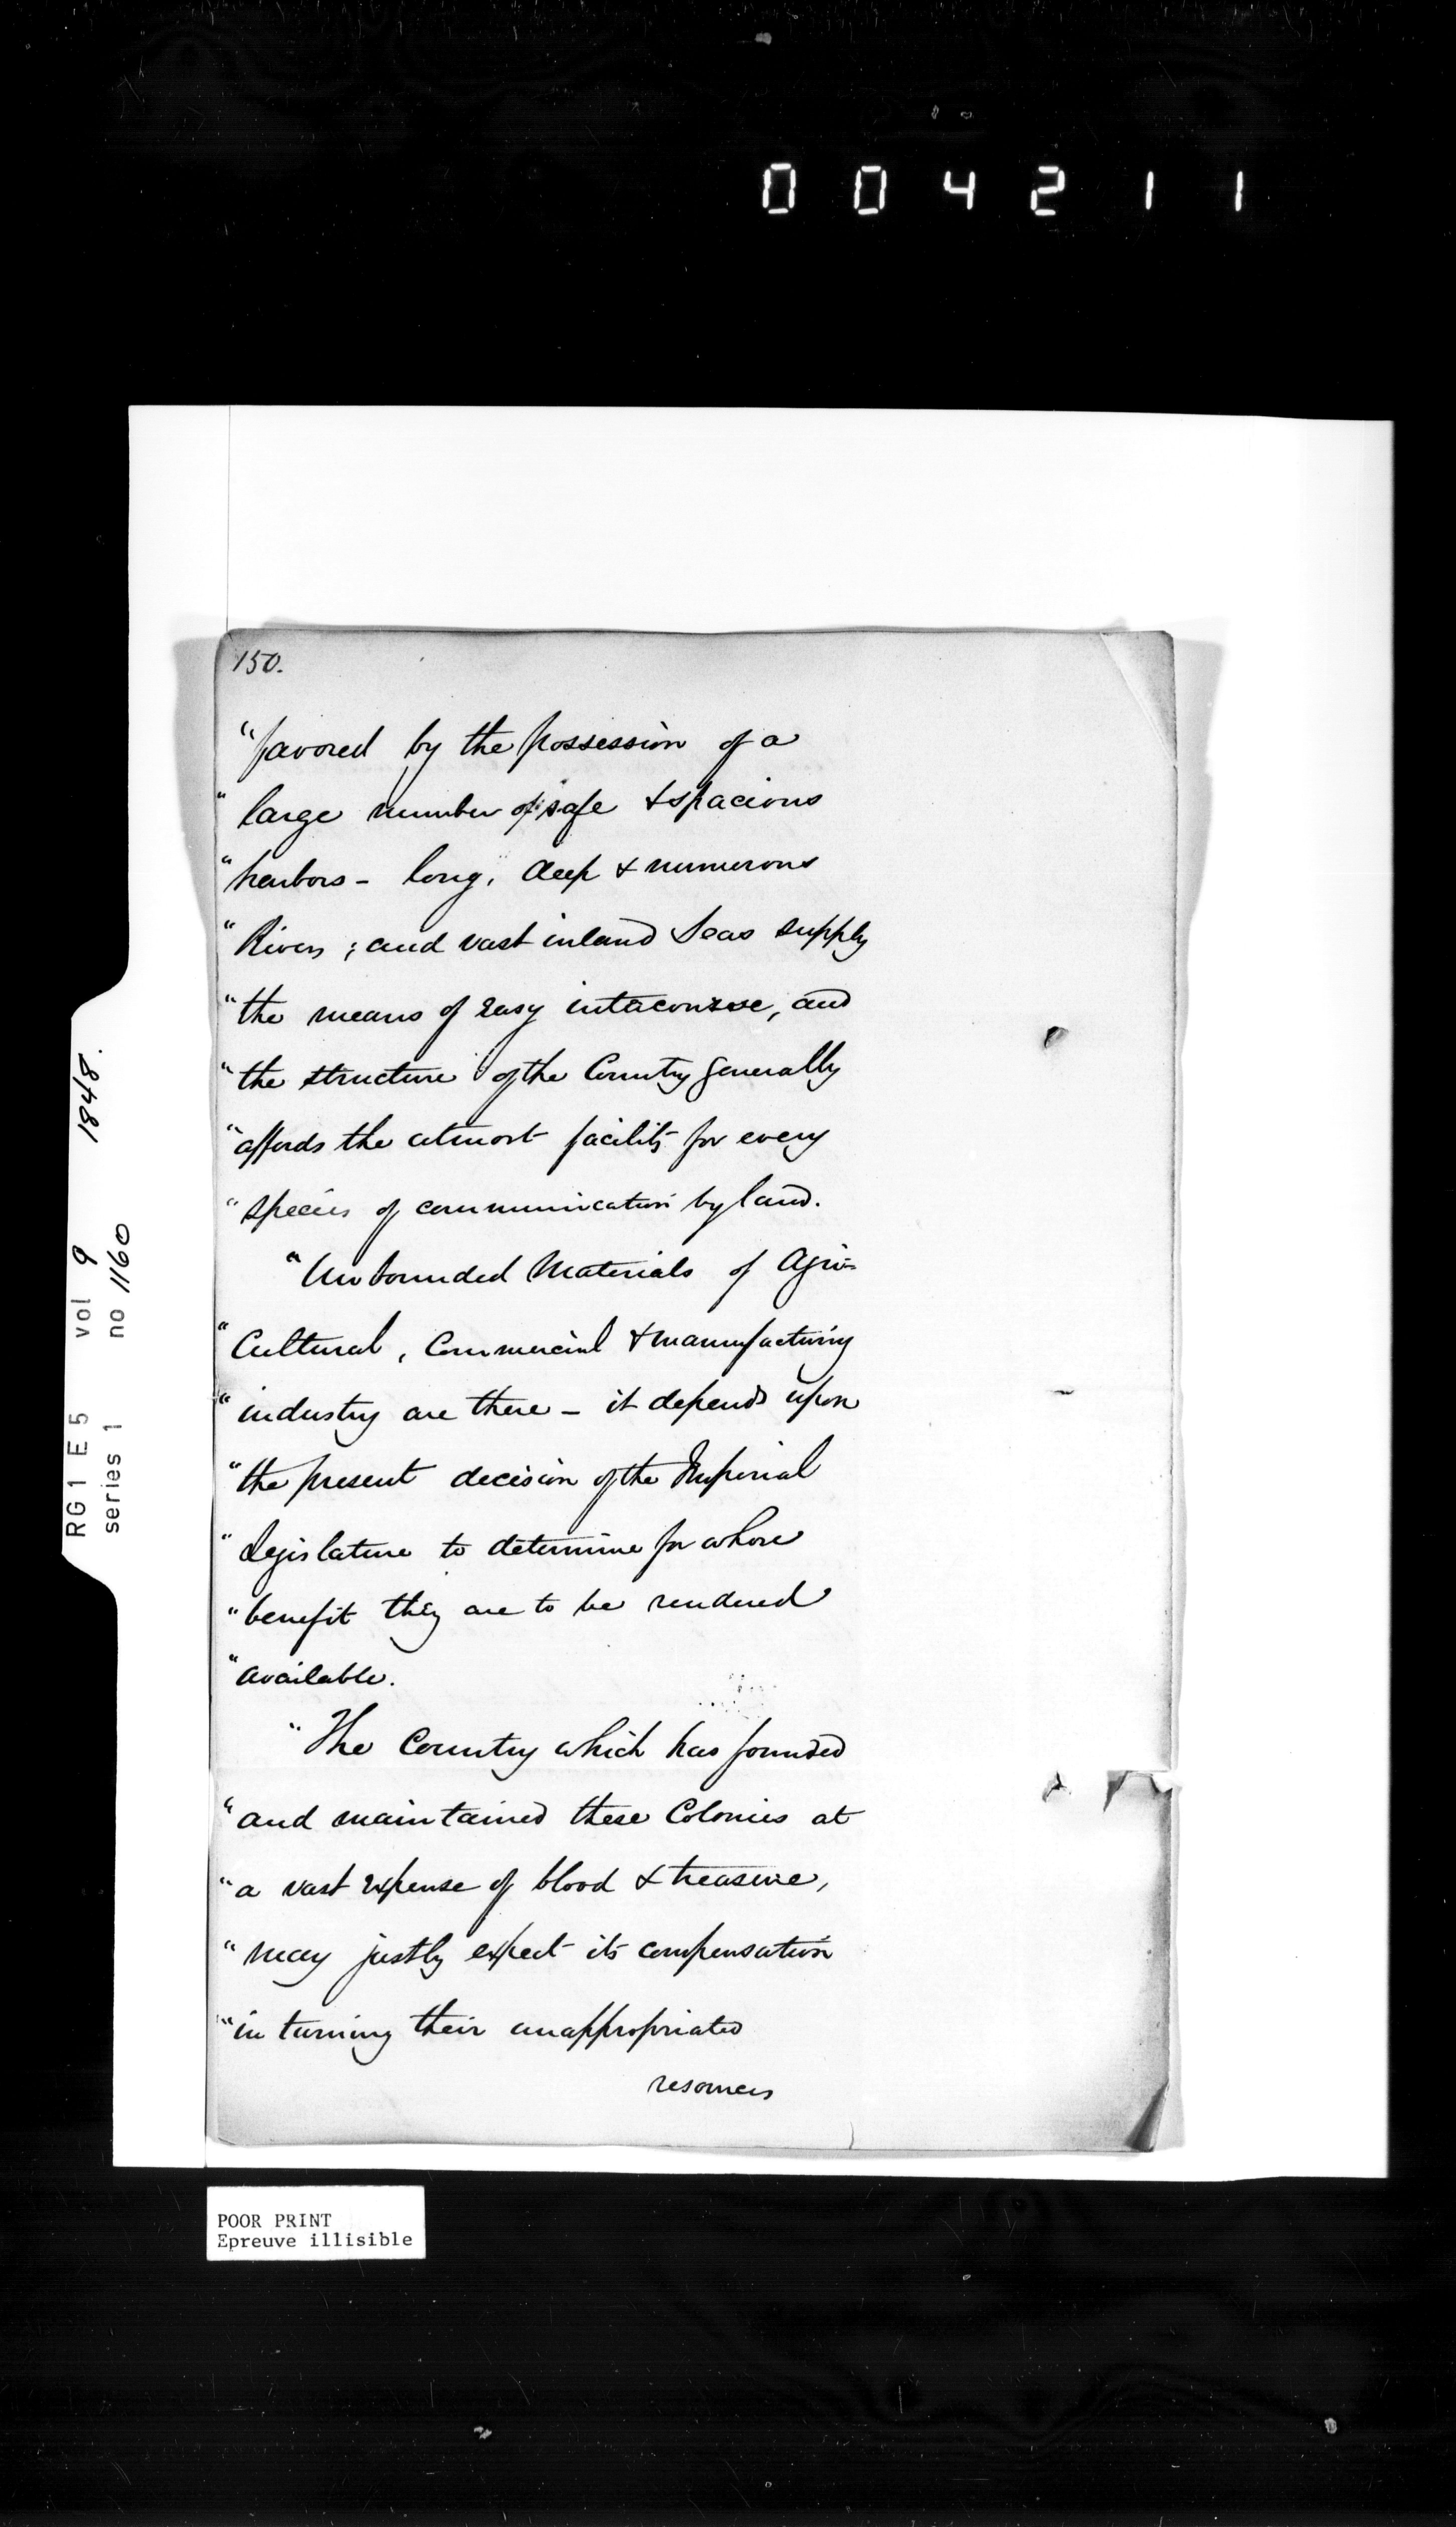 004211
150.
"favored by the possession of a
" large number of safe & spacious
" harbors - long, deep & numerous
" Rivers ; and vast inland Seas supply
" the means of easy intercourse, and
" the structure of the Country generally
" affords the utmost facility for every
" species of communication by land.
" Unbounded Materials of Agri=
" Cultural, Commercial & manufacturing
" industry are there - it depends upon
" the present decision of the Imperial
" Legislature to determine for whose
" benefit they are to be rendered
" available.
" The Country which has founded
" and maintained these Colonies at
" a vast expense of blood & treasure,
" may justly expect its compensation
" in turning their unappropriated
resources
RG1 E5 vol 9 1848.
series 1 no 1160
POOR PRINT
Epreuve illisible